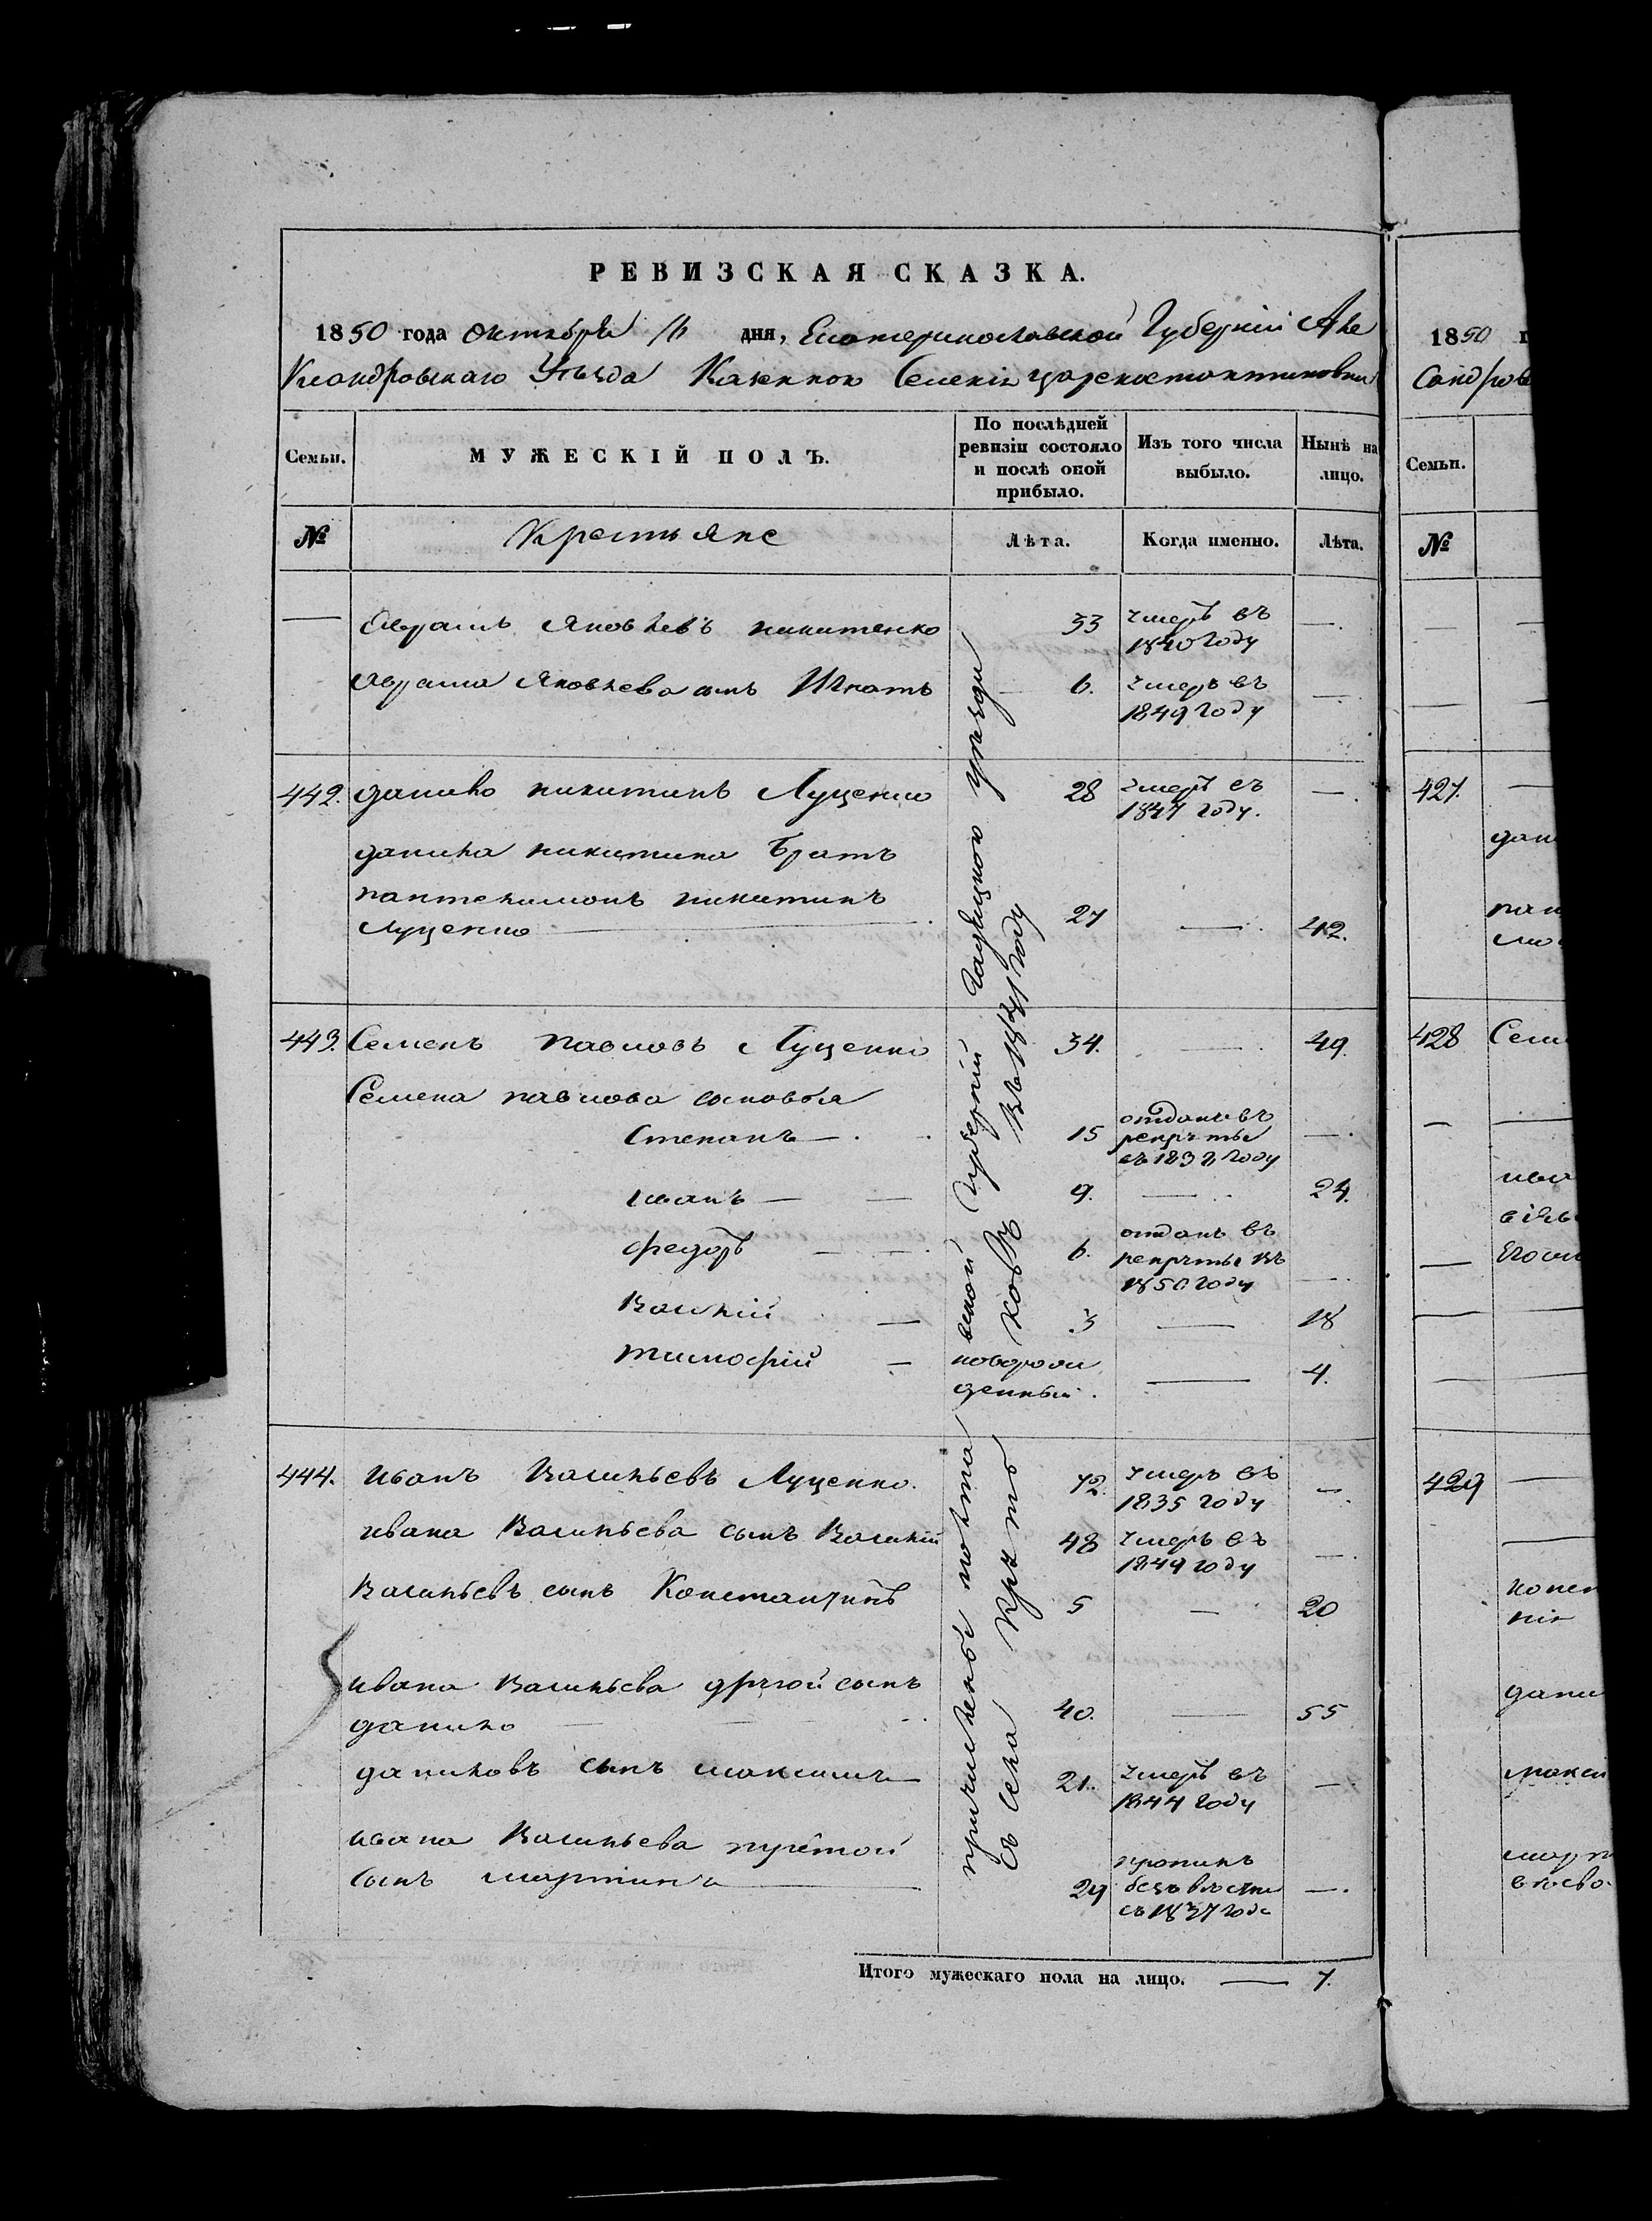 РЕВИЗСКАЯ СКАЗКА.
1850 года Октября 11 дня, Екатеринославской Губерніи Але
Ксандровскаго Уѣзда Казенного Селенія Цареконстантиновки
Семьи. МУЖЕСКІЙ ПОЛЪ. По послѣдней ревизіи состояло и послѣ оной прибыло. Изъ того числа выбыло. Нынѣ на лицо.
№ Крестьяне Лѣта. Когда именно. Лѣта.
— Аврамъ Яковлевъ Никитенко 33 умеръ въ 1840 году —
Аврама Яковлева сынъ Игнатъ 6. умеръ въ 1849 году —
442. данило никитинъ Луценко 28 умеръ въ 1847 году. —
данила никитина братъ
пантелимонъ никитинъ
Луценко 27 — 42.
443. Семенъ павловъ Луценко 34. — 49.
Семена павлова сыновья
Степанъ — 15 отданъ въ рекруты въ 1838 году —
иванъ — 9. — 24.
федоръ — 6. отданъ въ рекруты въ 1850 году —
Василій — 3 — 18
тимофій — новорож денный. — 4.
444. иванъ Васильевъ Луценко. 72. умеръ въ 1835 году —
ивана Васильева сынъ Василій 48 умеръ въ 1849 году —
Васильевъ сынъ Константинъ 5 — 20
ивана Васильева другой сынъ
данило 40. — 55
даниловъ сынъ максимъ 21. умеръ въ 1844 году —
ивана Васильева третой
сынъ мартинъ 29 пропалъ безъ вѣсти въ 1837 году —
причислены полта вской Губерніи Гадяцкого уѣзда
съ села въ 1841 году
Итого мужескаго пола на лицо. — 7.
1850
Семьи.
№
427.
428 Семе
429